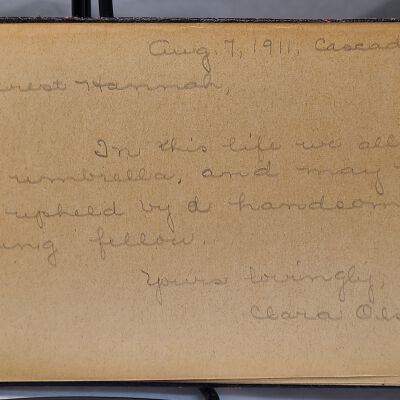 Aug. 7, 1911, Cascad
rest Hannah,
In this life we all
umbrella, and may
upheld by a handsom
ung fellow.
Yours lovingly,
Clara Ols